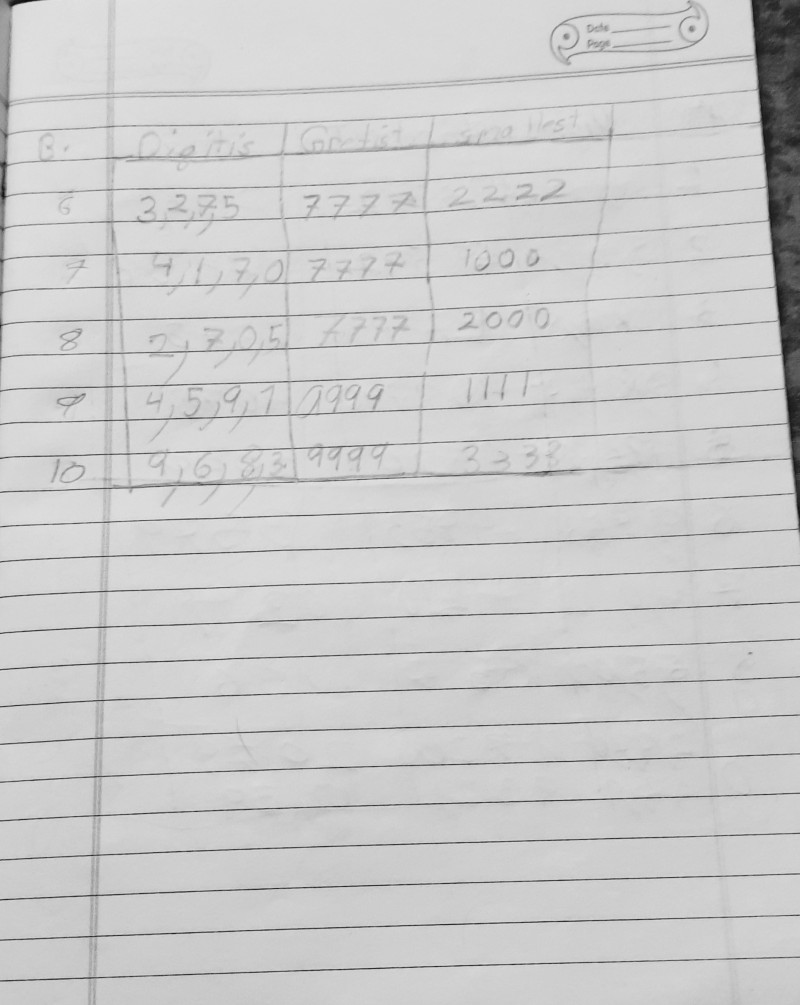 Date
Page
B. Digitis Gretist smallest
6 3,2,7,5 7777 2222
7 4,1,7,0 7777 1000
8 2,7,0,5 7777 2000
9 4,5,9,1 9999 1111
10 9,6,8,3 9999 3333